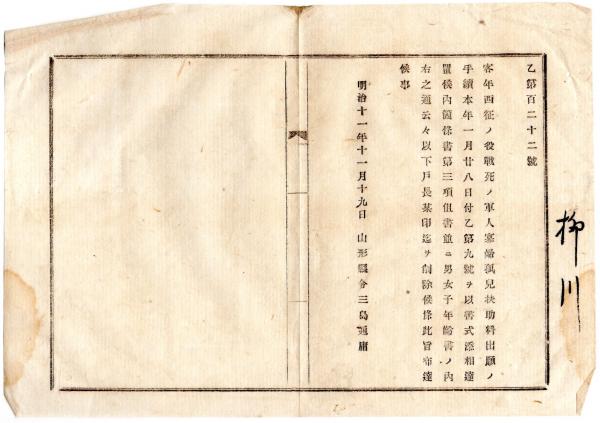 柳川
乙第百二十二號
客年西征ノ役戰死ノ軍人寡婦孤兒扶助料出願ノ
手續本年一月廿八日付乙第九號ヲ以書式添相達
置候內箇條書第三項但書並ニ男女子年齡書ノ內
右之通云々以下戶長某印迄ヲ削除候條此旨布達
候事
明治十一年十一月十九日 山形縣令三島通庸